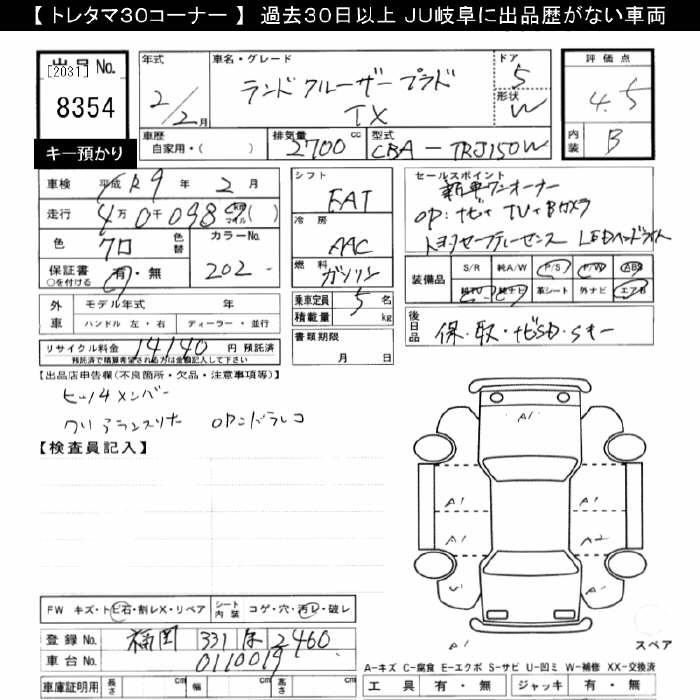 【 トレタマ30コーナー 】 過去30日以上 JU岐阜に出品歴がない車両
出品 No.
[2031]
8354
キー預かり
年式
2/2月
車名・グレード
ランドクルーザープラド
TX
ドア
5
形状
W
評価点
4.5
内装
B
車歴
自家用・( )
排気量
2700 cc
型式
CBA-TRJ150W
車検 平成 R9 年 2 月
走行 4万 0千 098 km マイル ( )
色 クロ 色替
カラーNo. 202
保証書 有・無
○を付ける
外車 モデル年式 年
ハンドル 左・右 ディーラー・並行
リサイクル料金 14140 円 預託済
預託済で精算希望される方は金額記入して下さい
シフト
FAT
冷房
AAC
燃料
ガソリン
乗車定員 5 名
積載量 kg
書類期限
月 日
セールスポイント
新車ワンオーナー
OP:ナビ+TV+Bカメラ
トヨタセーフティーセンス LEDヘッドライト
装備品
S/R 純A/W P/S P/W ABS
純TV 純ナビ 革シート 外ナビ エアB
後日品
保・取・ナビSD・Sキー
【出品店申告欄(不良箇所・欠品・注意事項等)】
ヒッチメンバー
クリアランスソナー OPンドラレコ
【検査員記入】
A1
A1
A1
A1
A2
A1
スペア
FW キズ・トビ石・割レX・リペア
シート内装 コゲ・穴・汚レ・破レ
登録 No. 福岡 331 ま 2460
車台 No. 0110019
車庫証明用 長さ cm 幅 cm 高さ cm
A-キズ C-腐食 E-エクボ S-サビ U-凹ミ W-補修 XX-交換済
工具 有・無 ジャッキ 有・無